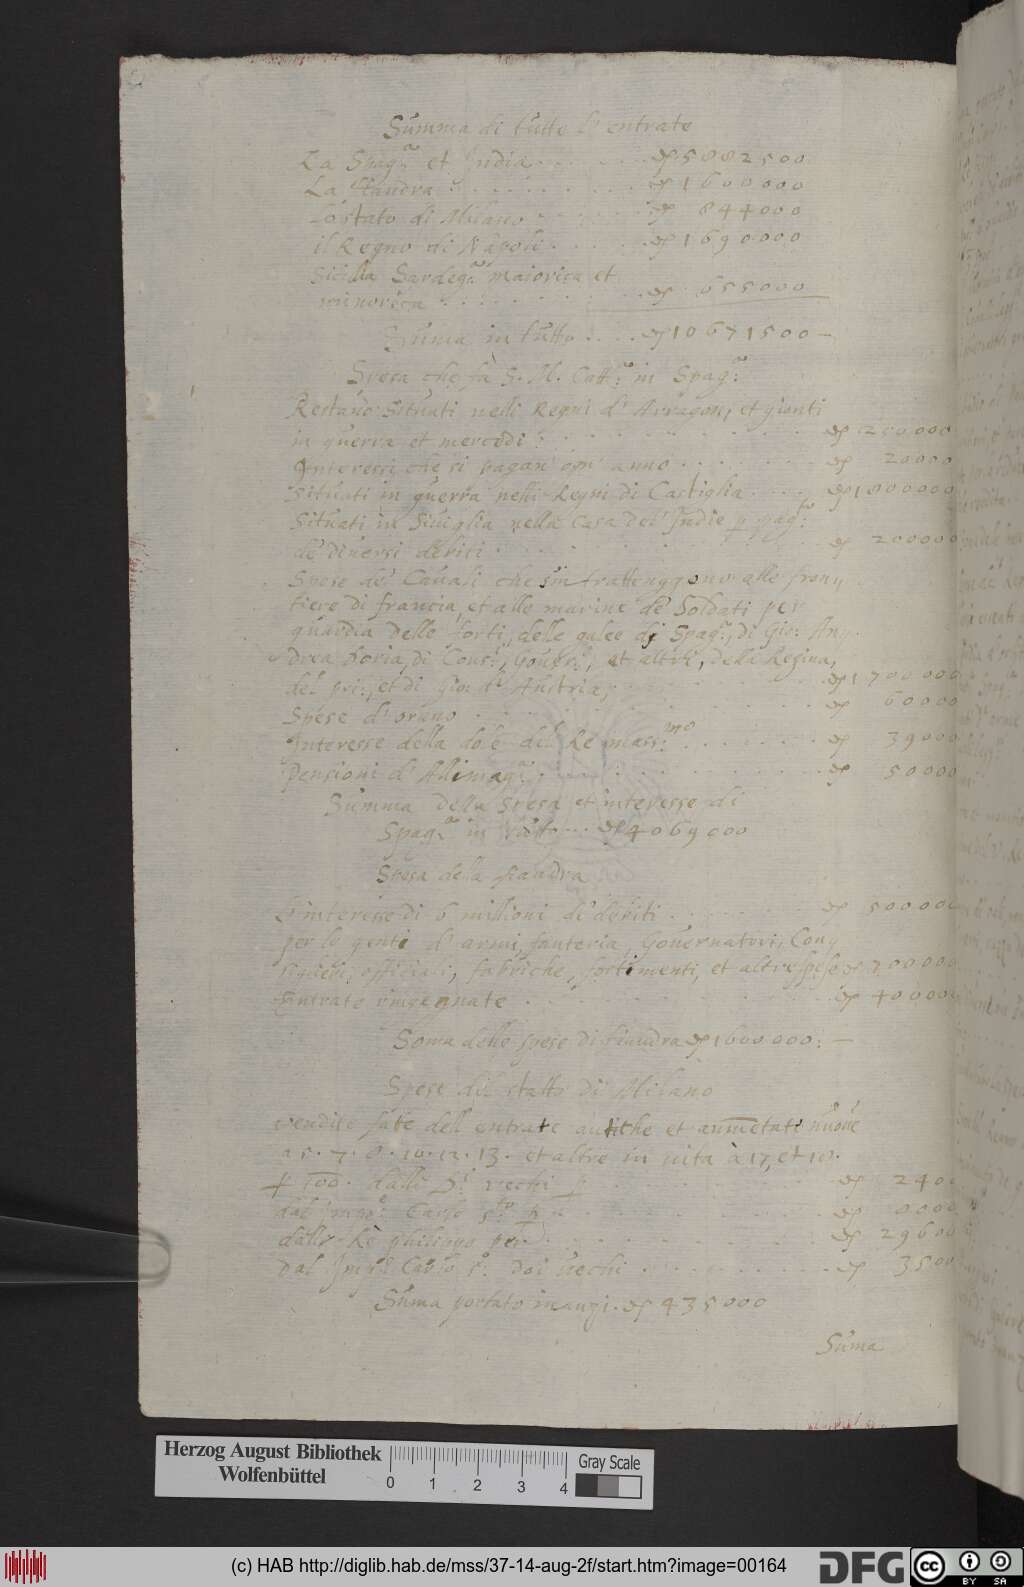 Summa di tutte l' entrate
La Spag.a et India . . . . . . 5882500
La fiandra . . . . . . . 1600000
Lo stato di Milano . . . . 844000
il Regno di Napoli . . . . . 1690000
Sicilia Sardeg.a maiorica et
minorica . . . . . . . . . 655000
Suma in tutto . . . . 10671500 —
Spesa che fà S. M. Catt.ca in Spag.a
Restano Situati nelli Regni d' Arragon, et gionti
in guerra et mercedi . . . . . . . 200000
Interessi che si pagan' ogn' anno . . . . . 20000
Situati in guerra nelli Regni di Castiglia . . . . 1800000
Situati in Siviglia nella Casa del' Indie p pag.to
de diversi debiti . . . . . . . 200000
Spese de' Cavali che si trattengono alle fron,,
tiere di francia, et alle marine de Soldati per
guardia delle forti, delle galee di Spag.a, di Gio: An,,
drea Doria, di Cons.ri, Gover.ri, et altri, della Regina,
del pri:, et di Gio: d' Austria, . . . . . 1700000
Spese d' orano . . . . . . . 60000
Interesse della dote del Re mass.mo . . . . . 39000
Pensioni d' Allimag.a . . . . . . . 50000
Summa della Spesa et interesse di
Spag.a in tutto . . . 4069000
Spesa della fiandra
L' interesse di 6 millioni di debiti . . . . . 500000
per le genti d' armi, fanteria, Governatori, Con,,
siglieri, officiali, fabriche, fortimenti, et altre spese 700000
Entrate impegnate . . . . . . . 400000
Soma delle spese di fiandra 1600000: —
Spese del statto di Milano
Vendite fate dell' entrate antiche et aumetate nuove
a 5 . 7 . 8 . 10 . 12 . 13 . et altre in vita à 17, et 18.
p 100 . dalli vechi p . . . . . 240
dal Imp.re Carlo 5.to p . . . . . 0000
dalle Rè philippo per . . . . . 29600
Dal Imp.re Carlo vechi . . . . . 3500
Suma portato inanzi . 435000
Suma
Herzog August Bibliothek
Wolfenbüttel
0 1 2 3 4
Gray Scale
(c) HAB http://diglib.hab.de/mss/37-14-aug-2f/start.htm?image=00164
DFG
cc BY SA